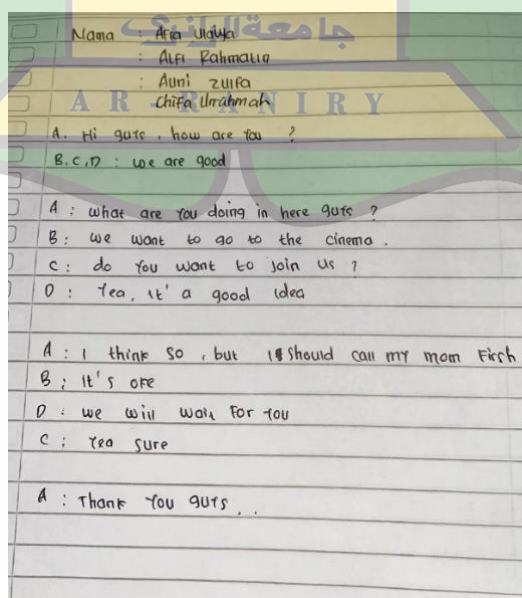 Nama : Aria Ulaiya
جامعة الرانيري
: Alfi Rahmatin
: Auni zulfa
AR-RANIRY
Chifa Urrahmah
A. Hi guys, how are you ?
B, C, D : we are good
A : what are you doing in here guys ?
B : we want to go to the cinema.
C : do you want to join us ?
D : Yea, it's a good idea
A : I think so, but I should call my mom first
B : It's oke
D : we will wait for you
C : Yea sure
A : Thank you guys . .